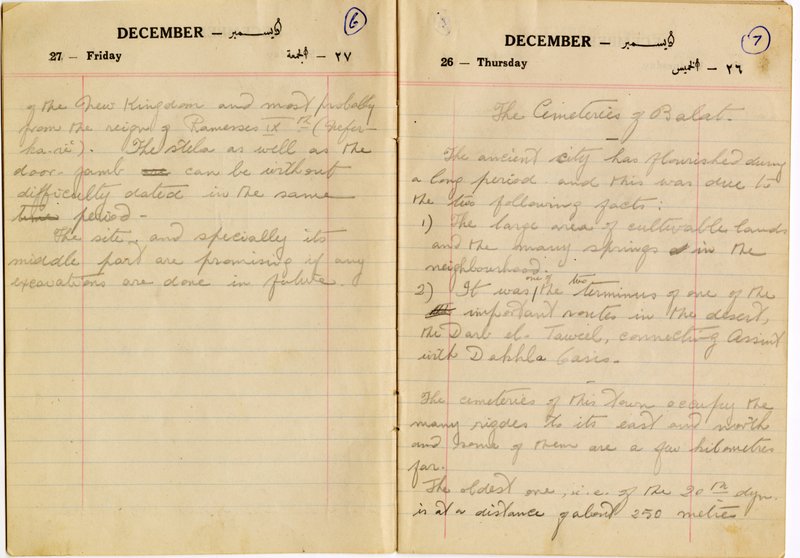 6
DECEMBER — ديسمبر
27 — Friday الجمعة — ٢٧
of the New Kingdom and most probably
from the reign of Ramesses IX th (Nefer-
ka-rē). The stela as well as the
door-jamb can be without
difficulty dated in the same
time period -
The site, and specially its
middle part are promising if any
excavations are done in future.
7
DECEMBER — ديسمبر
26 — Thursday الخميس — ٢٦
The Cemeteries of Balat.
The ancient city has flourished during
a long period and this was due to
the two following facts:
1) The large area of cultivable lands
and the many springs in the
neighbourhood.
2) It was one of the two terminus of one of the
important routes in the desert,
the Darb el-Taweel, connecting Assiut
with Dakhla Oasis.
The cemeteries of this town occupy the
many rigdes to its east and north
and some of them are a few kilometres
far.
The oldest one, i.e. of the 20 th dyn.
is at a distance of about 250 metres